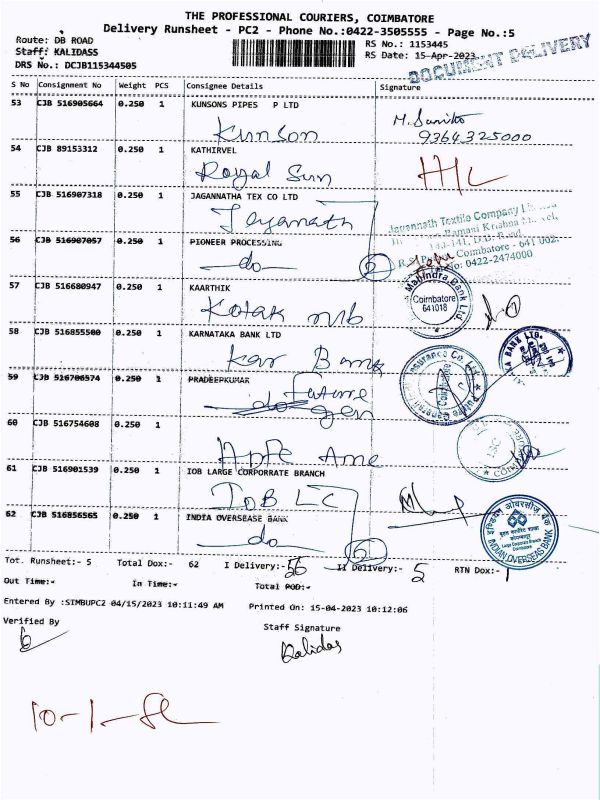 THE PROFESSIONAL COURIERS, COIMBATORE
Delivery Runsheet - PC2 - Phone No.:0422-3505555 - Page No.:5
Route: DB ROAD
RS No.: 1153445
Staff: KALIDASS
RS Date: 15-Apr-2023
DRS No.: DCJB115344505
DOCUMENT DELIVERY
S No Consignment No Weight PCS Consignee Details Signature
53 CJB 516905664 0.250 1 KUNSONS PIPES P LTD
Kunson
9364325000
54 CJB 89153312 0.250 1 KATHIRVEL
Royal Sun
55 CJB 516907318 0.250 1 JAGANNATHA TEX CO LTD
Jeganath
Jagannath Textile Company
56 CJB 516907057 0.250 1 PIONEER PROCESSING
do
Coimbatore - 641 002.
No: 0422-2474000
57 CJB 516680947 0.250 1 KAARTHIK
Kotak mb
Mahindra Bank Ltd
Coimbatore
641018
58 CJB 516855500 0.250 1 KARNATAKA BANK LTD
Kar Bank
BANK LTD.
59 CJB 516706574 0.250 1 PRADEEPKUMAR
Future
do gen
Insurance Co. Ltd
60 CJB 516754608 0.250 1
COIMBATORE
61 CJB 516901539 0.250 1 IOB LARGE CORPORRATE BRANCH
IOB LC
62 CJB 516856565 0.250 1 INDIA OVERSEASE BANK
do
इण्डियन ओवरसीज़ बैंक
INDIAN OVERSEAS BANK
Tot. Runsheet:- 5 Total Dox:- 62 I Delivery:- 56 II Delivery:- 5 RTN Dox:- 1
Out Time:- In Time:- Total POD:-
Entered By :SIMBUPC2 04/15/2023 10:11:49 AM Printed On: 15-04-2023 10:12:06
Verified By
Staff Signature
Kalidas